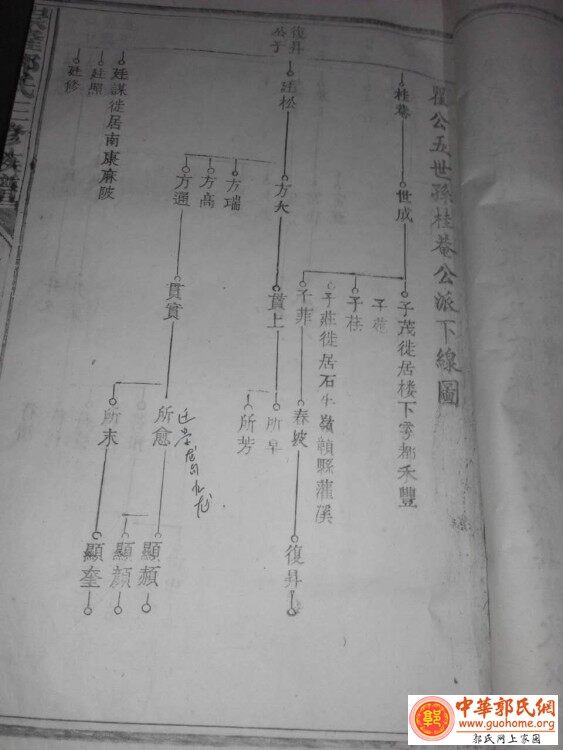 瞿公五世孫桂菴公派下線圖
桂菴
世成
子茂徙居楼下雩都禾豐
子桂
子莊徙居石牛嶺贛縣灌溪
子菲
春坡
復昇
復昇
公子
廷松
方大
方瑞
方高
方通
貫上
貫實
所早
所芳
所愈
所末
顯頫
顯顏
顯奎
廷謀徙居南康麻陂
廷照
廷修
郭氏三修族譜
中華郭氏網
www.guohome.org
郭氏网上家园